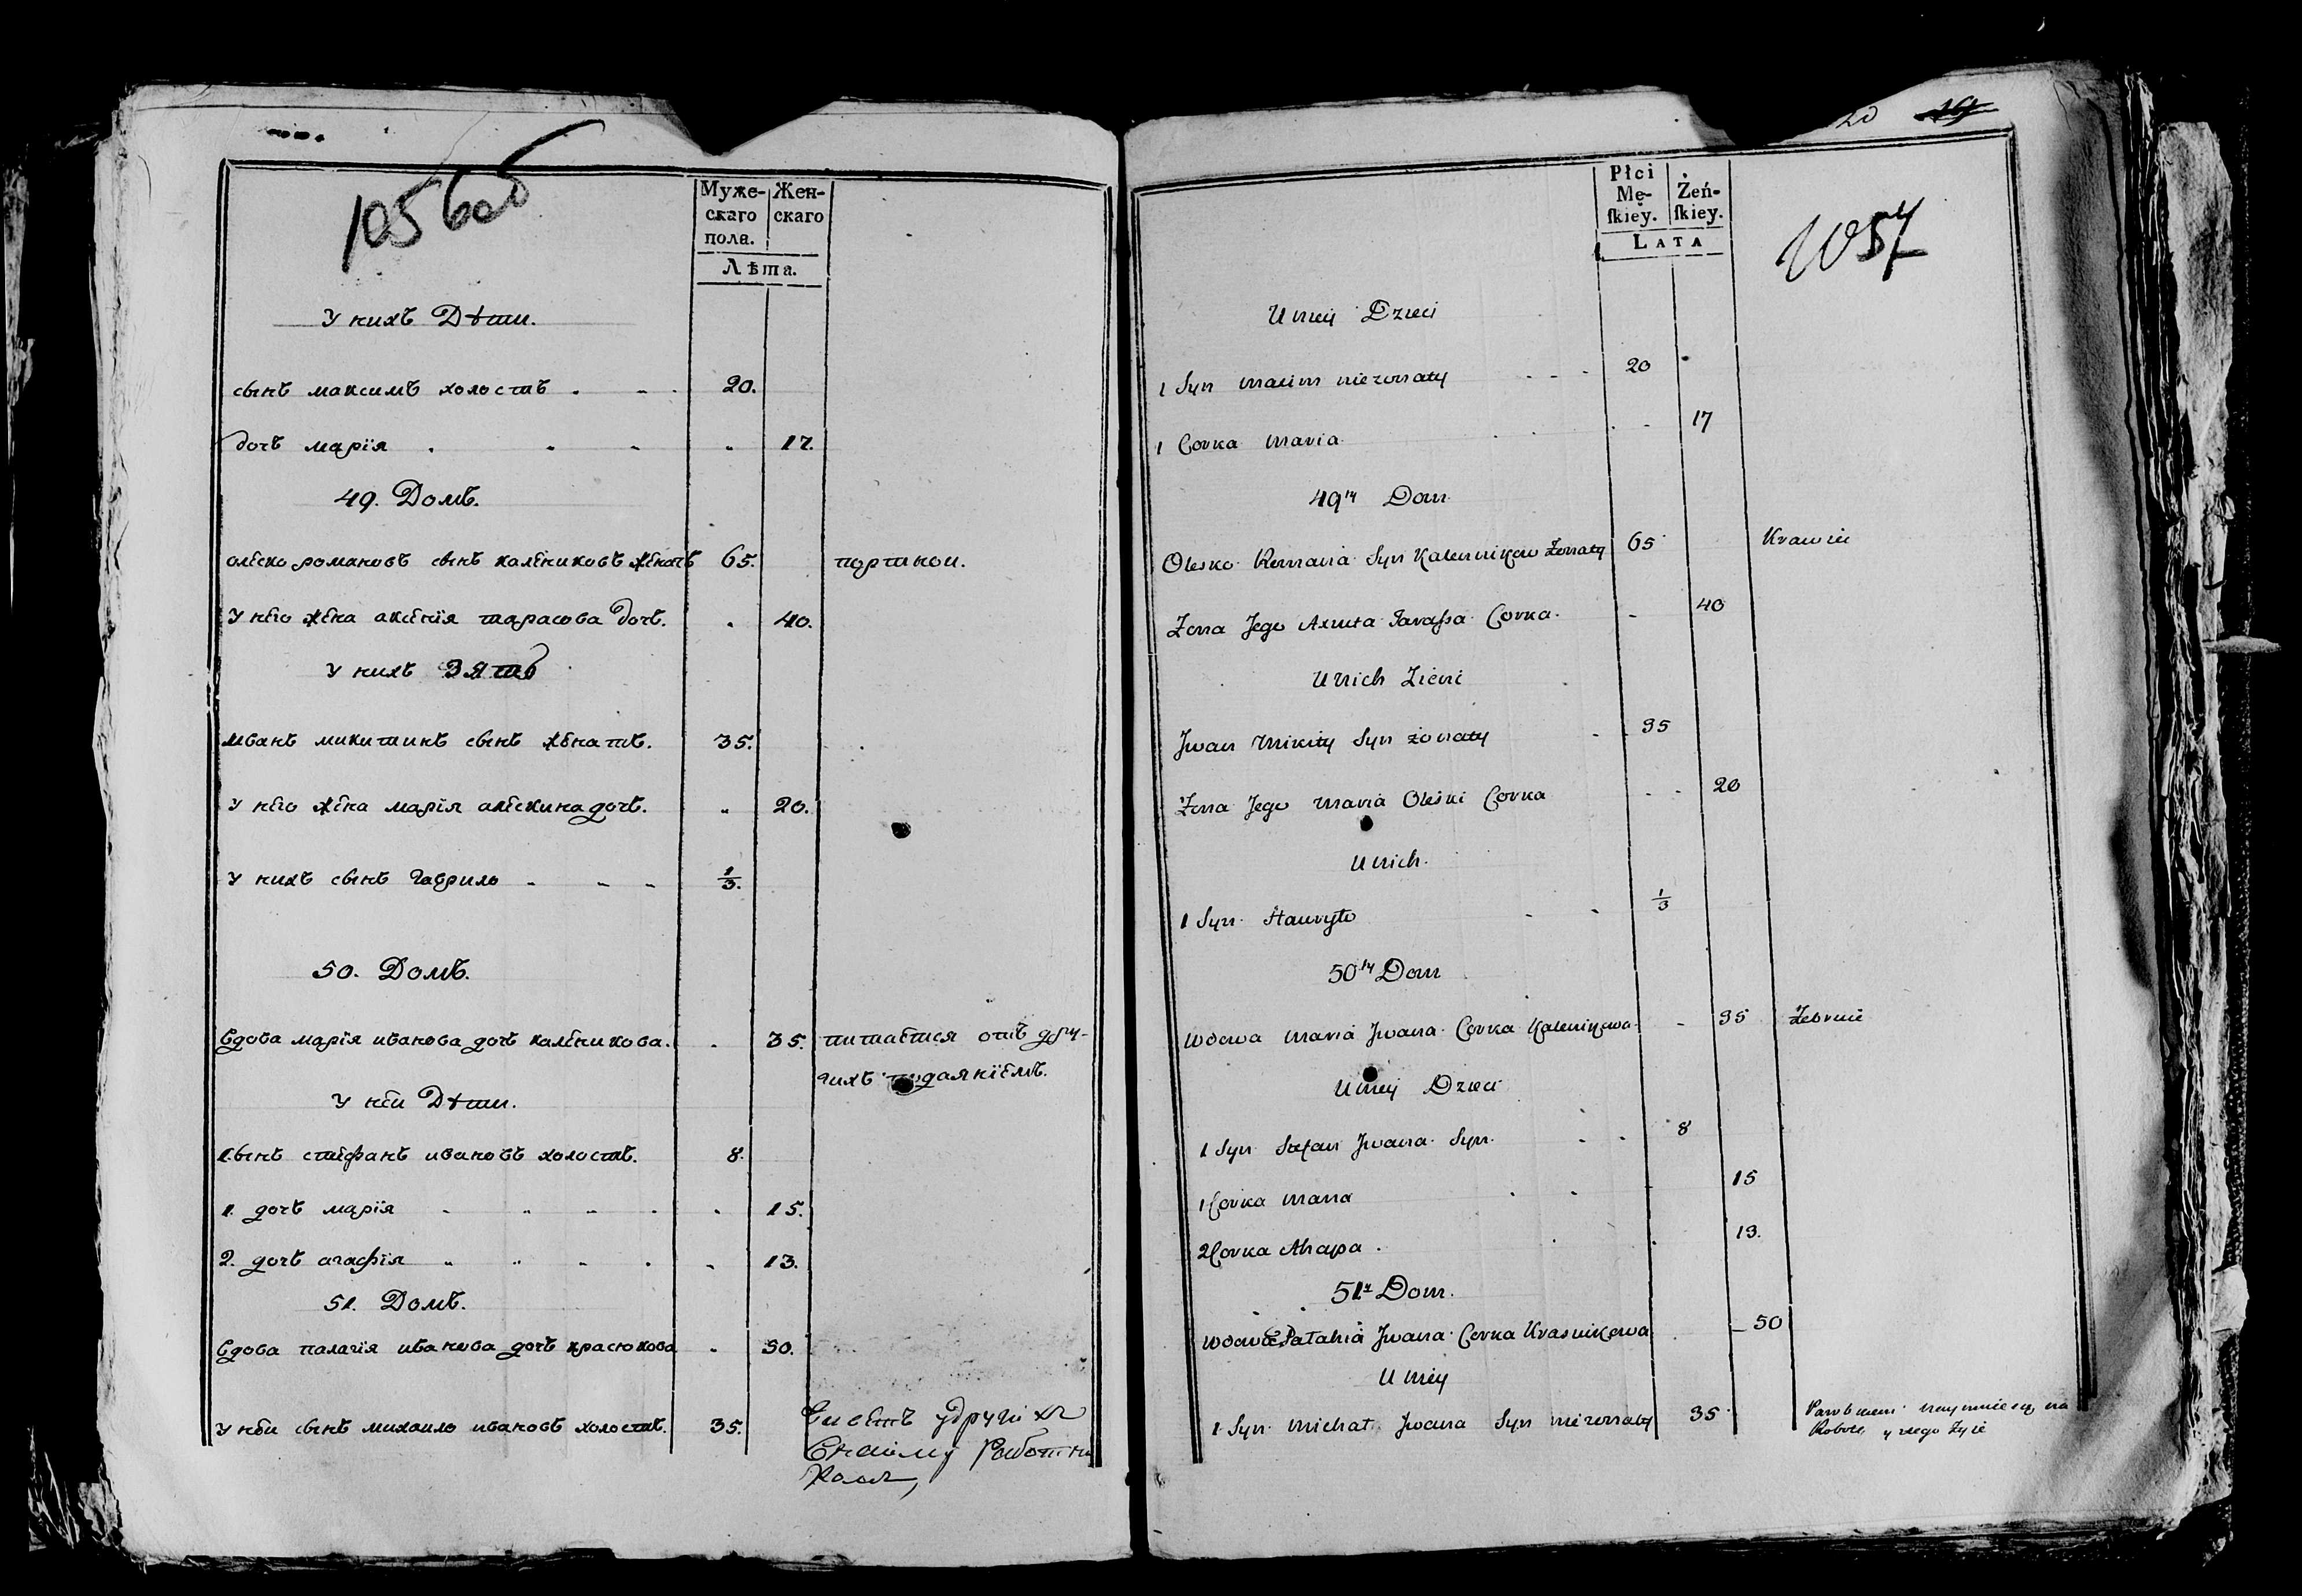 105боб
Муже-
скаго
пола.
Жен-
скаго
Лѣта.
У нихъ Дѣти.
сынъ максимъ холостъ 20.
дочъ марїя 17.
49. Домъ.
олеско романовъ сынъ калениковъ женатъ 65. портной.
У него жена аксенїя тарасова дочъ. 40.
У нихъ Зять
Иванъ микитинъ сынъ женатъ. 35.
У него жена марїя алескина дочъ. 20.
У нихъ сынъ гаврило 1/3.
50. Домъ.
вдова марїя иванова дочъ каленикова. 35. питается отъ дру-
гихъ подаянїемъ.
У ней Дѣти.
1. сынъ стефанъ ивановъ холостъ. 8.
1. дочъ марїя 15.
2. дочъ агафїя 13.
51. Домъ.
вдова палагїя иванова дочъ красюкова 50.
У ней сынъ михаило ивановъ холостъ. 35.
1057
Płci
Mę-
ſkiey.
Żeń-
ſkiey.
LATA
U niey Dzieci
1 Syn maxim niezonaty 20
1 Corka maria 17
49ty Dom
Olesko Romana Syn Kalennikow Zonaty 65 Krawiec
Zona Jego Axinia Tarassa Corka. 40
U nich Zienc
Jwan Mikity Syn żonaty 35
Zona Jego maria Oleski Corka 20
U nich.
1 Syn Hawryło 1/3
50ty Dom
Wdowa maria Jwana Corka Kalenikowa 35 Zebrze
U niey Dzieci
1 Syn Stefan Jwana Syn. 8
1 Corka maria 15
2 Corka Ahapa. 13.
51y Dom.
Wdowa Pałahia Jwana Corka Krasnikowa 50
U niey
1 Syn michał Jwana Syn niezonaty 35